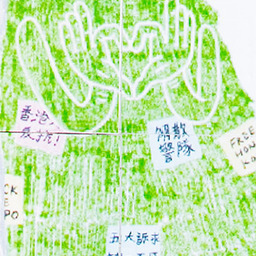 香港人
反抗!
解散
警隊
FREE
HON
K
CK
E
PO
五大訴求